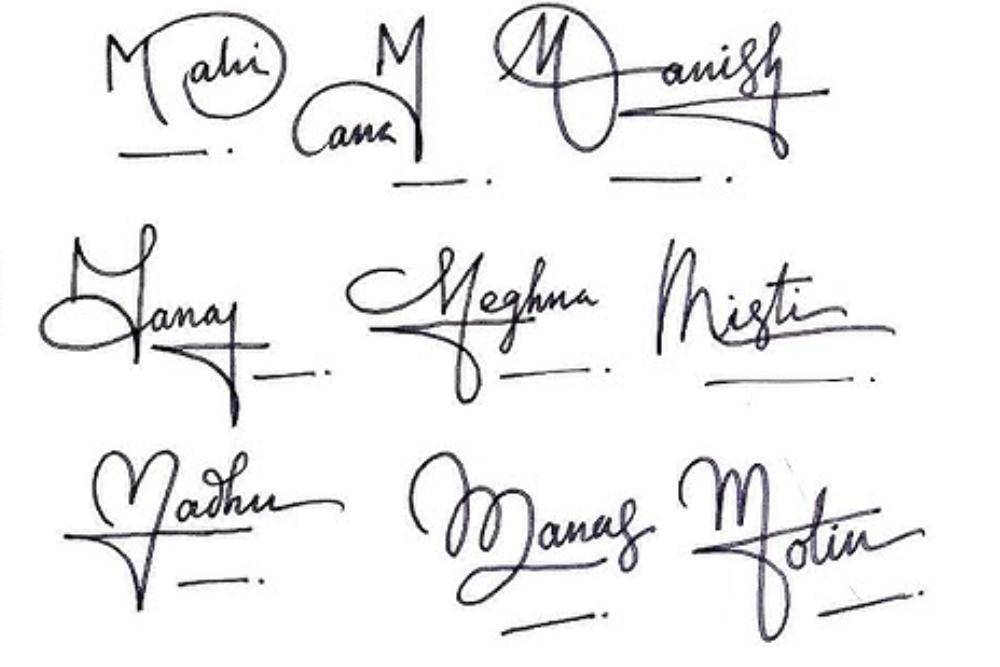 Mahi Mana Manish
Manaj Meghna Misti
Madhu Manas Motin